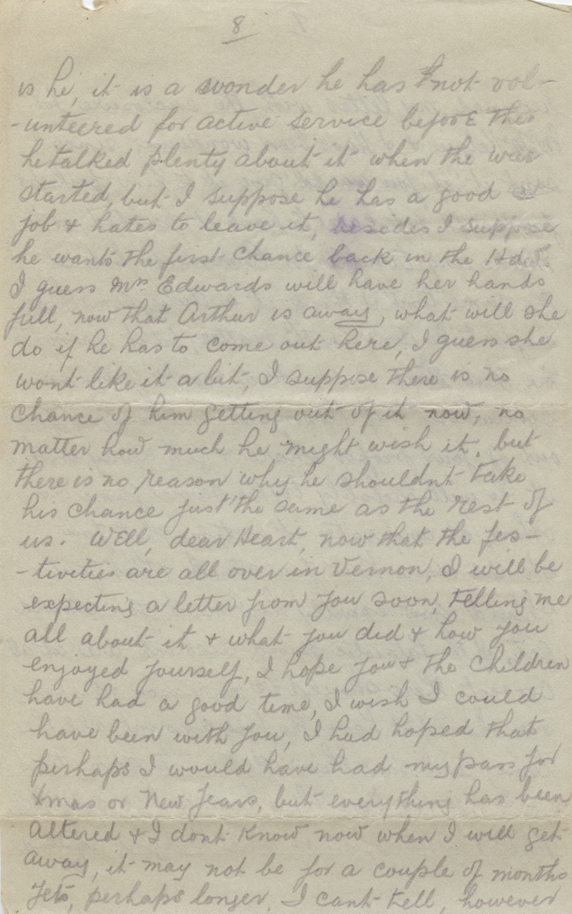 8
is he, it is a wonder he has not vol-
-unteered for active service before this
he talked plenty about it when the war
started, but I suppose he has a good
job & hates to leave it, besides I suppose
he wants the first chance back in the
I guess Mrs Edwards will have her hands
full, now that Arthur is away, what will she
do if he has to come out here, I guess she
wont like it a bit, I suppose there is no
chance of him getting out of it now, no
matter how much he might wish it, but
there is no reason why he shouldnt take
his chance just the same as the rest of
us. Well, dear Heart, now that the fes-
-tivities are all over in Vernon, I will be
expecting a letter from you soon, telling me
all about it & what you did & how you
enjoyed yourself, I hope you & the children
have had a good time, I wish I could
have been with you, I had hoped that
perhaps I would have had my pass for
Xmas or New Years, but everything has been
altered & I dont know now when I will get
away, it may not be for a couple of months
yet, perhaps longer, I cant tell, however